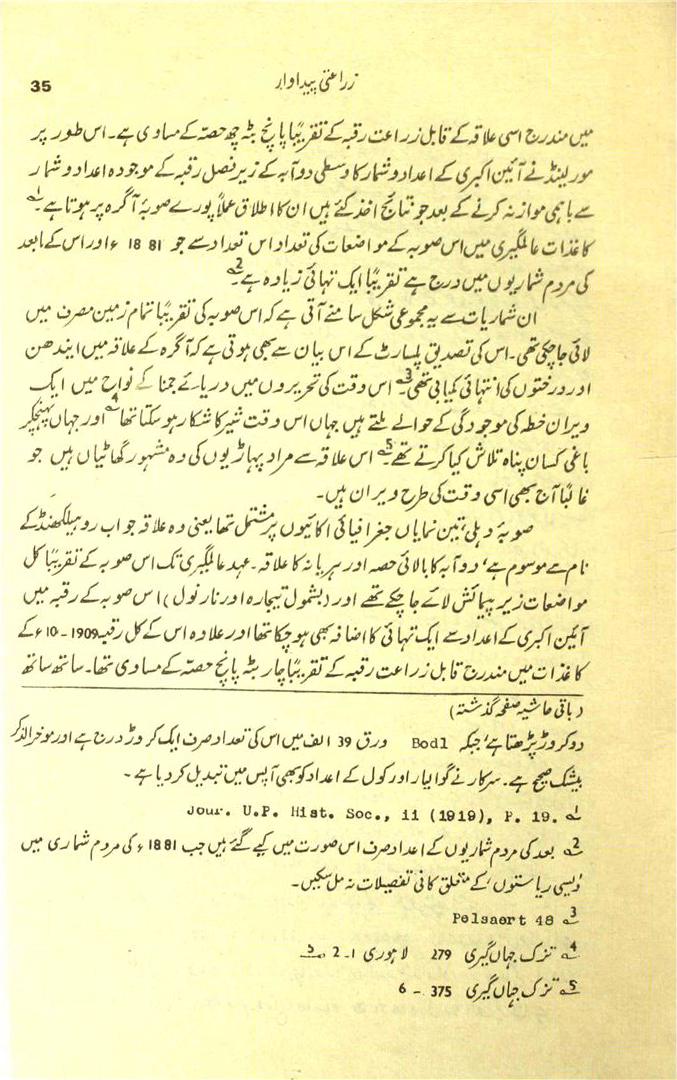 35
زراعتی پیداوار
میں مندرج اسی علاقہ کے قابل زراعت رقبہ کے تقریباً پانچ بٹہ چھ حصّہ کے مساوی ہے۔ اس طور پر
مورلینڈ نے آئین اکبری کے اعداد و شمار کا وسطی دوآبہ کے زیر فصل رقبہ کے موجودہ اعداد و شمار
سے باہمی موازنہ کرنے کے بعد جو نتائج اخذ کئے ہیں ان کا اطلاق عملاً پورے صوبۂ آگرہ پر ہوتا ہے۔1
کاغذات عالمگیری میں اس صوبہ کے مواضعات کی تعداد اس تعداد سے جو 1881ء اور اس کے مابعد
کی مردم شماریوں میں درج ہے تقریباً ایک تہائی زیادہ ہے۔2
ان شماریات سے یہ مجموعی شکل سامنے آتی ہے کہ اس صوبہ کی تقریباً تمام زمین مصرف میں
لائی جاچکی تھی۔ اس کی تصدیق پلسارٹ کے اس بیان سے بھی ہوتی ہے کہ آگرہ کے علاقہ میں ایندھن
اور درختوں کی انتہائی کمیابی تھی۔3 اس وقت کی تحریروں میں دریائے جمنا کے نواح میں ایک
ویران خطہ کی موجودگی کے حوالے ملتے ہیں جہاں اس وقت شیر کا شکار ہو سکتا تھا4 اور جہاں پہنچکر
باغی کسان پناہ تلاش کیا کرتے تھے۔5 اس علاقہ سے مراد پہاڑیوں کی وہ مشہور گھاٹیاں ہیں جو
غالباً آج بھی اسی وقت کی طرح ویران ہیں۔
صوبۂ دہلی، تین نمایاں جغرافیائی اکائیوں پر مشتمل تھا یعنی وہ علاقہ جو اب روہیلکھنڈ کے
نام سے موسوم ہے، دوآبہ کا بالائی حصہ اور ہریانہ کا علاقہ۔ عہد عالمگیری تک اس صوبہ کے تقریباً کل
مواضعات زیر پیمائش لائے جاچکے تھے اور (بشمول تیجارہ اور نارنول) اس صوبہ کے رقبہ میں
آئین اکبری کے اعداد سے ایک تہائی کا اضافہ بھی ہو چکا تھا اور علاوہ اس کے کل رقبہ 1909-10ء کے
کاغذات میں مندرج قابل زراعت رقبہ کے تقریباً چار بٹہ پانچ حصّہ کے مساوی تھا۔ ساتھ ساتھ
(باقی حاشیہ صفحہ گذشتہ)
دو کروڑ پڑھتا ہے، جبکہ Bodl ورق 39 الف میں اس کی تعداد صرف ایک کروڑ درج ہے اور موخرالذکر
بیشک صحیح ہے۔ سرکار نے گوالیار اور کول کے اعداد کو بھی آپس میں تبدیل کر دیا ہے۔
1 Jour. U.P. Hist. Soc., ii (1919), P. 19.
2 بعد کی مردم شماریوں کے اعداد صرف اس صورت میں لیے گئے ہیں جب 1881ء کی مردم شماری میں
'دیسی ریاستوں' کے متعلق کافی تفصیلات نہ مل سکیں۔
3 Pelsaert 48
4 تزک جہاں گیری 279 لاہوری 1-2 5
5 تزک جہاں گیری 375 - 6